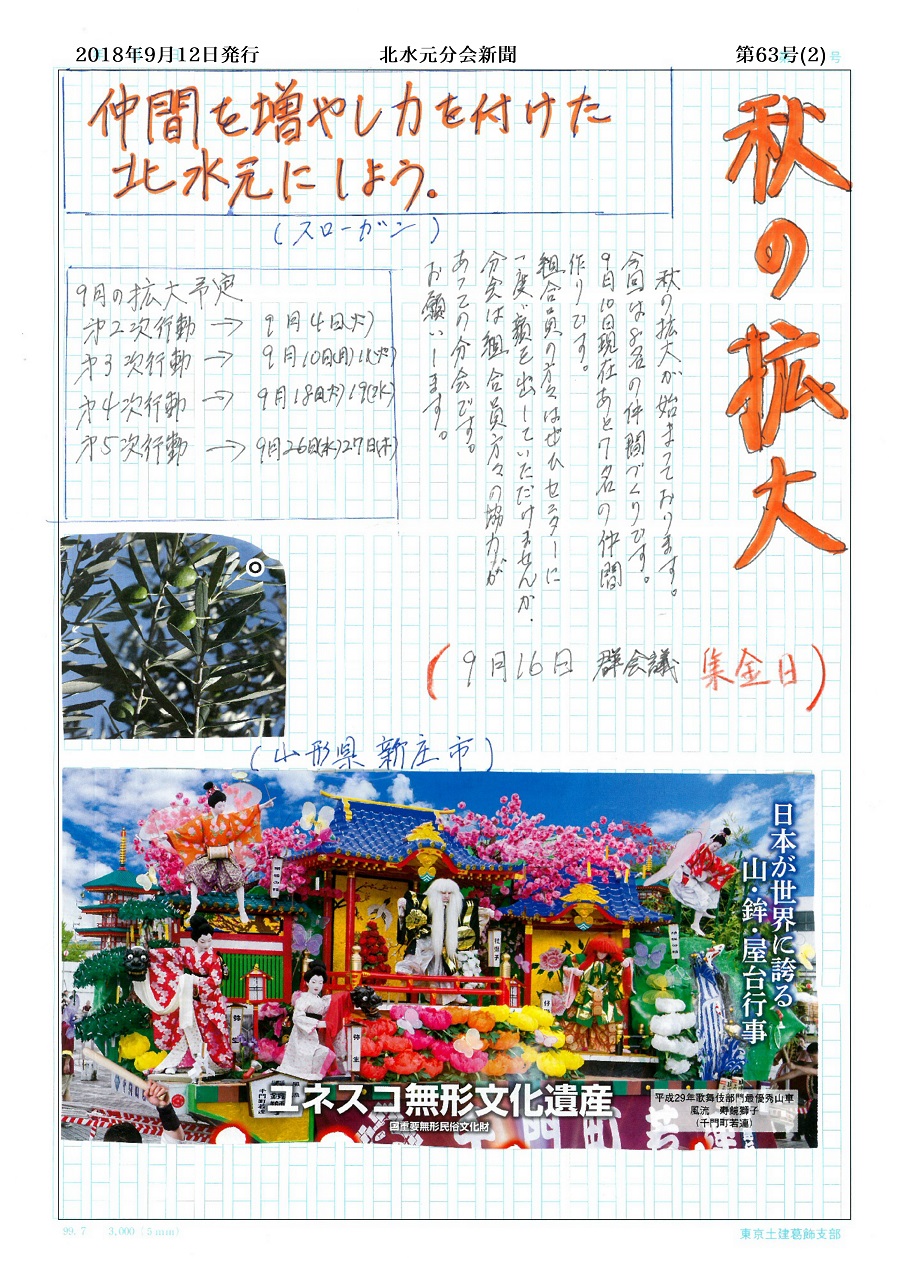 2018年9月12日発行
北水元分会新聞
第63号(2)
秋の拡大
仲間を増やし力を付けた
北水元にしよう。
(スローガン)
秋の拡大が始まっております。
9月10日現在あと7名の仲間
作りです。
組合員の方々はぜひセンターに
一度、顔を出していただけませんか.
分会は組合員方々の協力が
あっての分会です。
お願いします。
9月の拡大予定
第2次行動 → 9月4日(火)
第3次行動 → 9月10日(月)11(火)
第4次行動 → 9月18日(火)19(水)
第5次行動 → 9月26日(水)27日(木)
(9月16日 群会議 集金日)
(山形県新庄市)
日本が世界に誇る
山・鉾・屋台行事
ユネスコ無形文化遺産
国重要無形民俗文化財
平成29年歌舞伎部門最優秀山車
風流 寿鏡獅子
(千門町若連)
弥生
99.7 3,000 (5mm)
東京土建葛飾支部